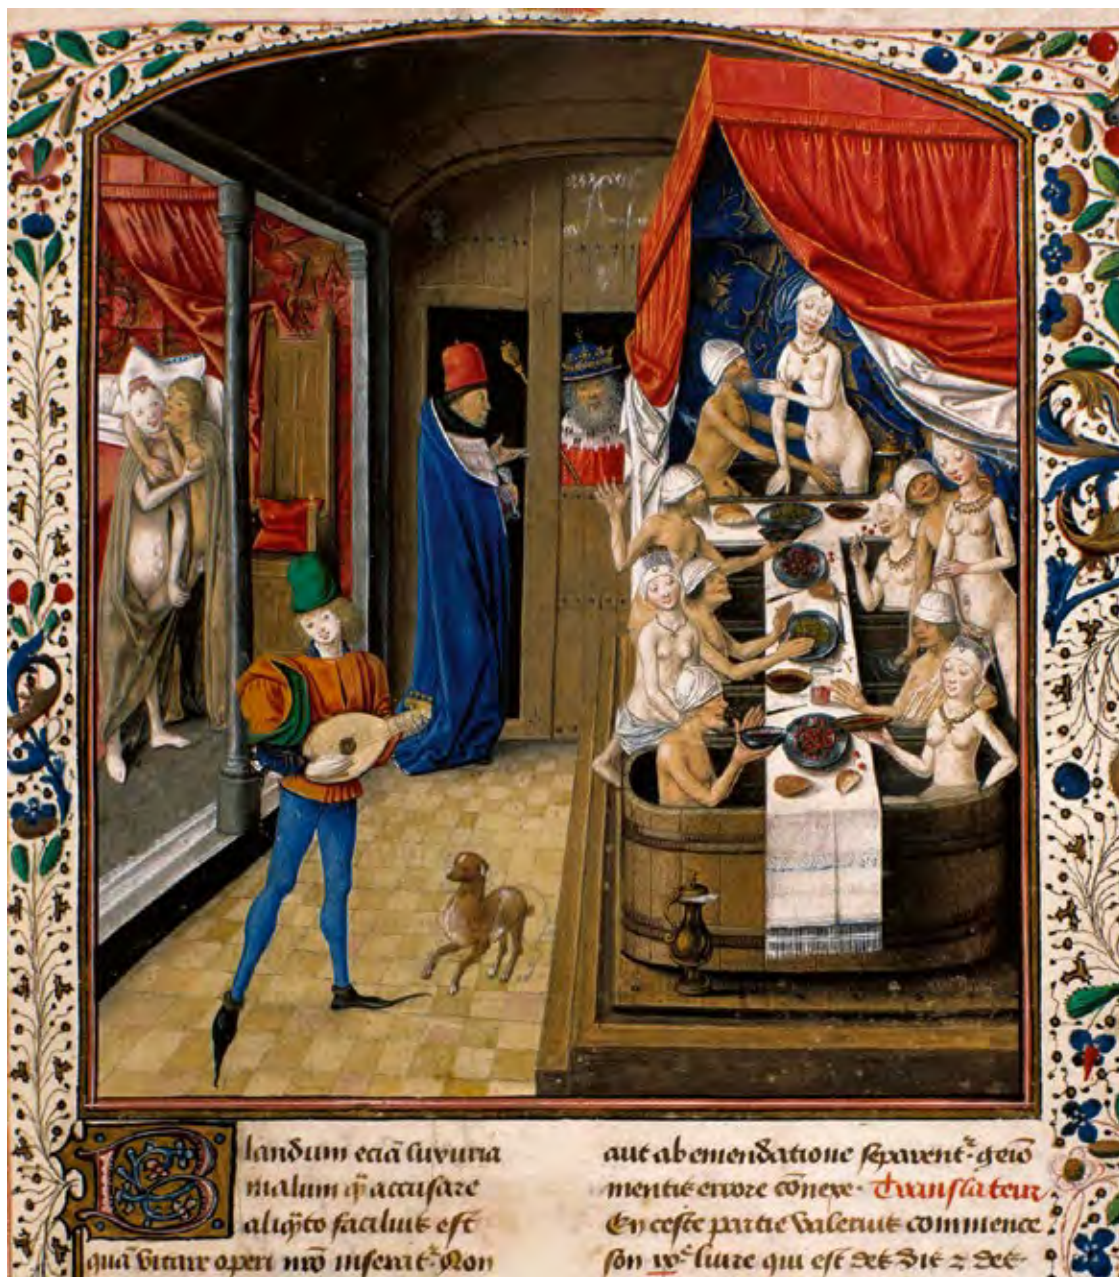 Blandum eciā luxuria
malum q̄ accusare
aliq̄to facilius est
quā vitare operi nr̄o inserat᷑. Non
aut ab emendatione separent᷑.
mentis errore cōnexe. Translateur
En ceste partie valerius commence
son ix.e liure qui est des dit ⁊ des